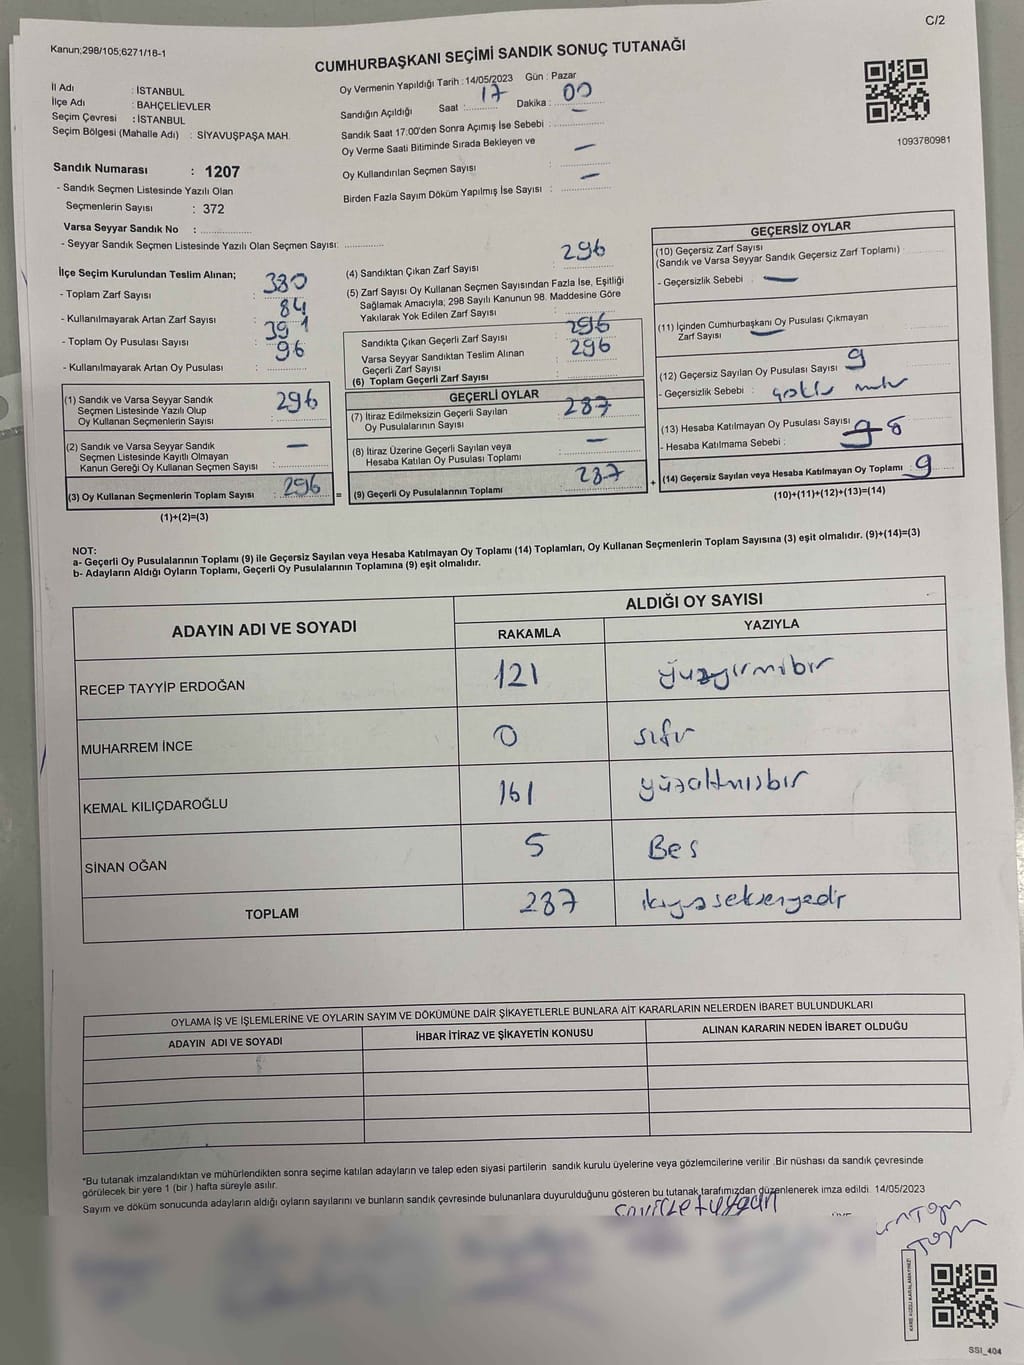 C/2
Kanun;298/105;6271/18-1
CUMHURBAŞKANI SEÇİMİ SANDIK SONUÇ TUTANAĞI
İl Adı : İSTANBUL
İlçe Adı : BAHÇELİEVLER
Seçim Çevresi : İSTANBUL
Seçim Bölgesi (Mahalle Adı) : SİYAVUŞPAŞA MAH.
Oy Vermenin Yapıldığı Tarih : 14/05/2023 Gün : Pazar
Sandığın Açıldığı Saat : 17 Dakika : 00
Sandık Saat 17:00'den Sonra Açımış İse Sebebi : —
Oy Verme Saati Bitiminde Sırada Bekleyen ve
Oy Kullandırılan Seçmen Sayısı : —
Birden Fazla Sayım Döküm Yapılmış İse Sayısı : —
1093780981
Sandık Numarası : 1207
- Sandık Seçmen Listesinde Yazılı Olan
Seçmenlerin Sayısı : 372
Varsa Seyyar Sandık No :
- Seyyar Sandık Seçmen Listesinde Yazılı Olan Seçmen Sayısı:
İlçe Seçim Kurulundan Teslim Alınan;
- Toplam Zarf Sayısı : 380
- Kullanılmayarak Artan Zarf Sayısı : 84
- Toplam Oy Pusulası Sayısı : 391
- Kullanılmayarak Artan Oy Pusulası : 96
(1) Sandık ve Varsa Seyyar Sandık
Seçmen Listesinde Yazılı Olup
Oy Kullanan Seçmenlerin Sayısı 296
(2) Sandık ve Varsa Seyyar Sandık
Seçmen Listesinde Kayıtlı Olmayan
Kanun Gereği Oy Kullanan Seçmen Sayısı : —
(3) Oy Kullanan Seçmenlerin Toplam Sayısı : 296
(1)+(2)=(3)
(4) Sandıktan Çıkan Zarf Sayısı : 296
(5) Zarf Sayısı Oy Kullanan Seçmen Sayısından Fazla İse, Eşitliği
Sağlamak Amacıyla; 298 Sayılı Kanunun 98. Maddesine Göre
Yakılarak Yok Edilen Zarf Sayısı :
Sandıkta Çıkan Geçerli Zarf Sayısı : 296
Varsa Seyyar Sandıktan Teslim Alınan
Geçerli Zarf Sayısı : 296
(6) Toplam Geçerli Zarf Sayısı :
GEÇERLİ OYLAR
(7) İtiraz Edilmeksizin Geçerli Sayılan
Oy Pusulalarının Sayısı : 287
(8) İtiraz Üzerine Geçerli Sayılan veya
Hesaba Katılan Oy Pusulası Toplamı : —
= (9) Geçerli Oy Pusulalarının Toplamı : 287
GEÇERSİZ OYLAR
(10) Geçersiz Zarf Sayısı
(Sandık ve Varsa Seyyar Sandık Geçersiz Zarf Toplamı) :
- Geçersizlik Sebebi : —
(11) İçinden Cumhurbaşkanı Oy Pusulası Çıkmayan
Zarf Sayısı : —
(12) Geçersiz Sayılan Oy Pusulası Sayısı : 9
- Geçersizlik Sebebi :
(13) Hesaba Katılmayan Oy Pusulası Sayısı
- Hesaba Katılmama Sebebi :
+ (14) Geçersiz Sayılan veya Hesaba Katılmayan Oy Toplamı : 9
(10)+(11)+(12)+(13)=(14)
NOT:
a- Geçerli Oy Pusulalarının Toplamı (9) ile Geçersiz Sayılan veya Hesaba Katılmayan Oy Toplamı (14) Toplamları, Oy Kullanan Seçmenlerin Toplam Sayısına (3) eşit olmalıdır. (9)+(14)=(3)
b- Adayların Aldığı Oyların Toplamı, Geçerli Oy Pusulalarının Toplamına (9) eşit olmalıdır.
ADAYIN ADI VE SOYADI
ALDIĞI OY SAYISI
RAKAMLA YAZIYLA
RECEP TAYYİP ERDOĞAN 121 yüzyirmibir
MUHARREM İNCE 0 sıfır
KEMAL KILIÇDAROĞLU 161 yüzaltmışbir
SİNAN OĞAN 5 Beş
TOPLAM 287 ikiyüzseksenyedi
OYLAMA İŞ VE İŞLEMLERİNE VE OYLARIN SAYIM VE DÖKÜMÜNE DAİR ŞİKAYETLERLE BUNLARA AİT KARARLARIN NELERDEN İBARET BULUNDUKLARI
ADAYIN ADI VE SOYADI İHBAR İTİRAZ VE ŞİKAYETİN KONUSU ALINAN KARARIN NEDEN İBARET OLDUĞU
*Bu tutanak imzalandıktan ve mühürlendikten sonra seçime katılan adayların ve talep eden siyasi partilerin sandık kurulu üyelerine veya gözlemcilerine verilir .Bir nüshası da sandık çevresinde
görülecek bir yere 1 (bir ) hafta süreyle asılır.
Sayım ve döküm sonucunda adayların aldığı oyların sayılarını ve bunların sandık çevresinde bulunanlara duyurulduğunu gösteren bu tutanak tarafımızdan düzenlenerek imza edildi. 14/05/2023
KARE KODU KARALAMAYINIZ!
SSI_404